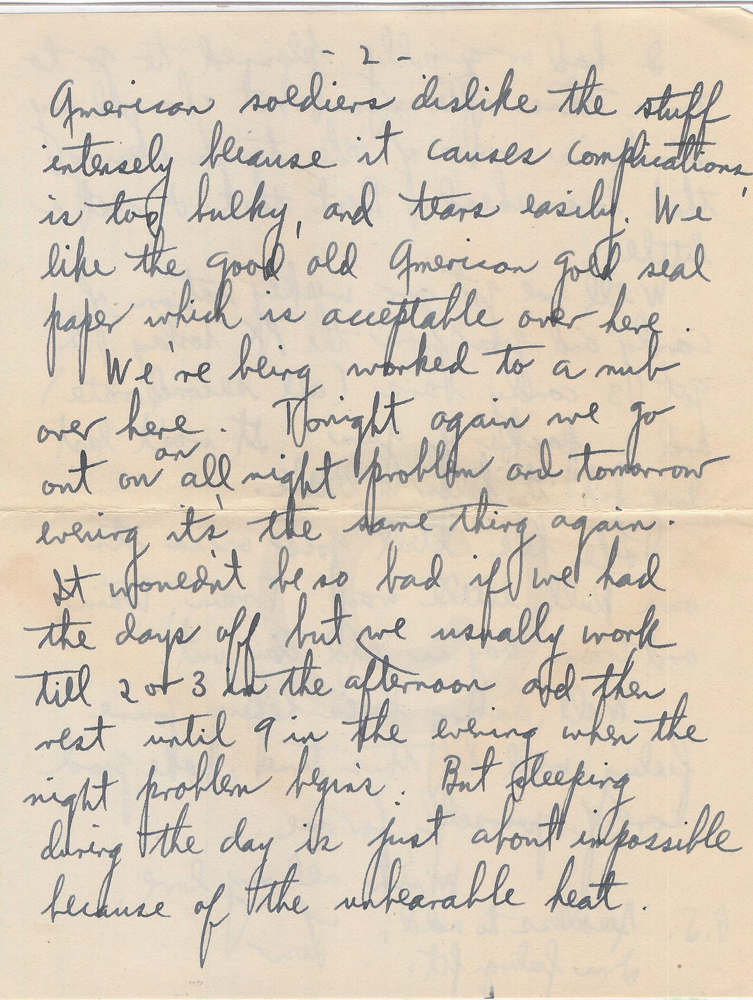 - 2 -
American soldiers dislike the stuff
intensely because it causes complications,
is too bulky, and tears easily. We
like the good old American gold seal
paper which is acceptable over here.
We're being worked to a nub
over here. Tonight again we go
out on an all night problem and tomorrow
evening it's the same thing again.
It wouldn't be so bad if we had
the days off but we usually work
till 2 or 3 in the afternoon and then
rest until 9 in the evening when the
night problem begins. But sleeping
during the day is just about impossible
because of the unbearable heat.